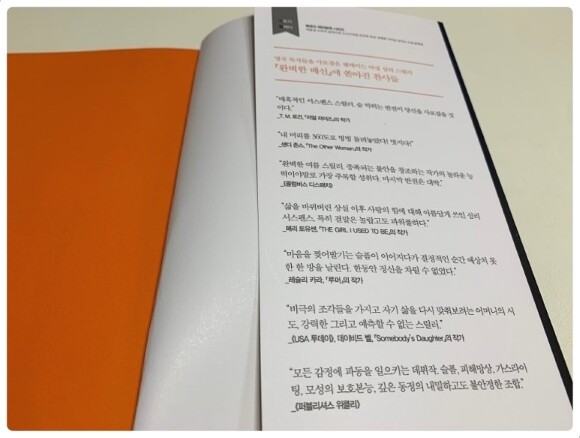 영국 독자들을 사로잡은 웰메이드 여성 심리 스릴러
『완벽한 배신』에 쏟아진 찬사들
“매혹적인 서스펜스 스릴러. 숨 막히는 반전이 당신을 사로잡을 것
이다.”
_T. M. 로건, 『리얼 라이즈』의 작가
“내 머리를 360도로 빙빙 돌려놓았다! 멋지다!”
_샌디 존스, 『The Other Woman』의 작가
“완벽한 여름 스릴러. 중독되는 불안을 창조하는 작가의 놀라운 능
력이야말로 가장 주목할 성취다. 마지막 반전은 대박.”
_《콜럼버스 디스패치》
“삶을 바꿔버린 상실 이후 사랑의 힘에 대해 아름답게 쓰인 심리
서스펜스. 특히 결말은 놀랍고도 파워풀하다.”
_페리 토유센, 『THE GIRL I USED TO BE』의 작가
“마음을 찢어발기는 슬픔이 이어지다가 결정적인 순간 예상치 못
한 한 방을 날린다. 한동안 정신을 차릴 수 없었다.”
_레슬리 카라, 『루머』의 작가
“비극의 조각들을 가지고 자기 삶을 다시 맞춰보려는 어머니의 시
도, 강력한 그리고 예측할 수 없는 스릴러.”
_《USA 투데이》, 데이비드 벨, 『Somebody's Daughter』의 작가
“모든 감정에 파동을 일으키는 데뷔작. 슬픔, 피해망상, 가스라이
팅, 모성의 보호본능, 깊은 동정의 내밀하고도 불안정한 조합.”
_《퍼블리셔스 위클리》